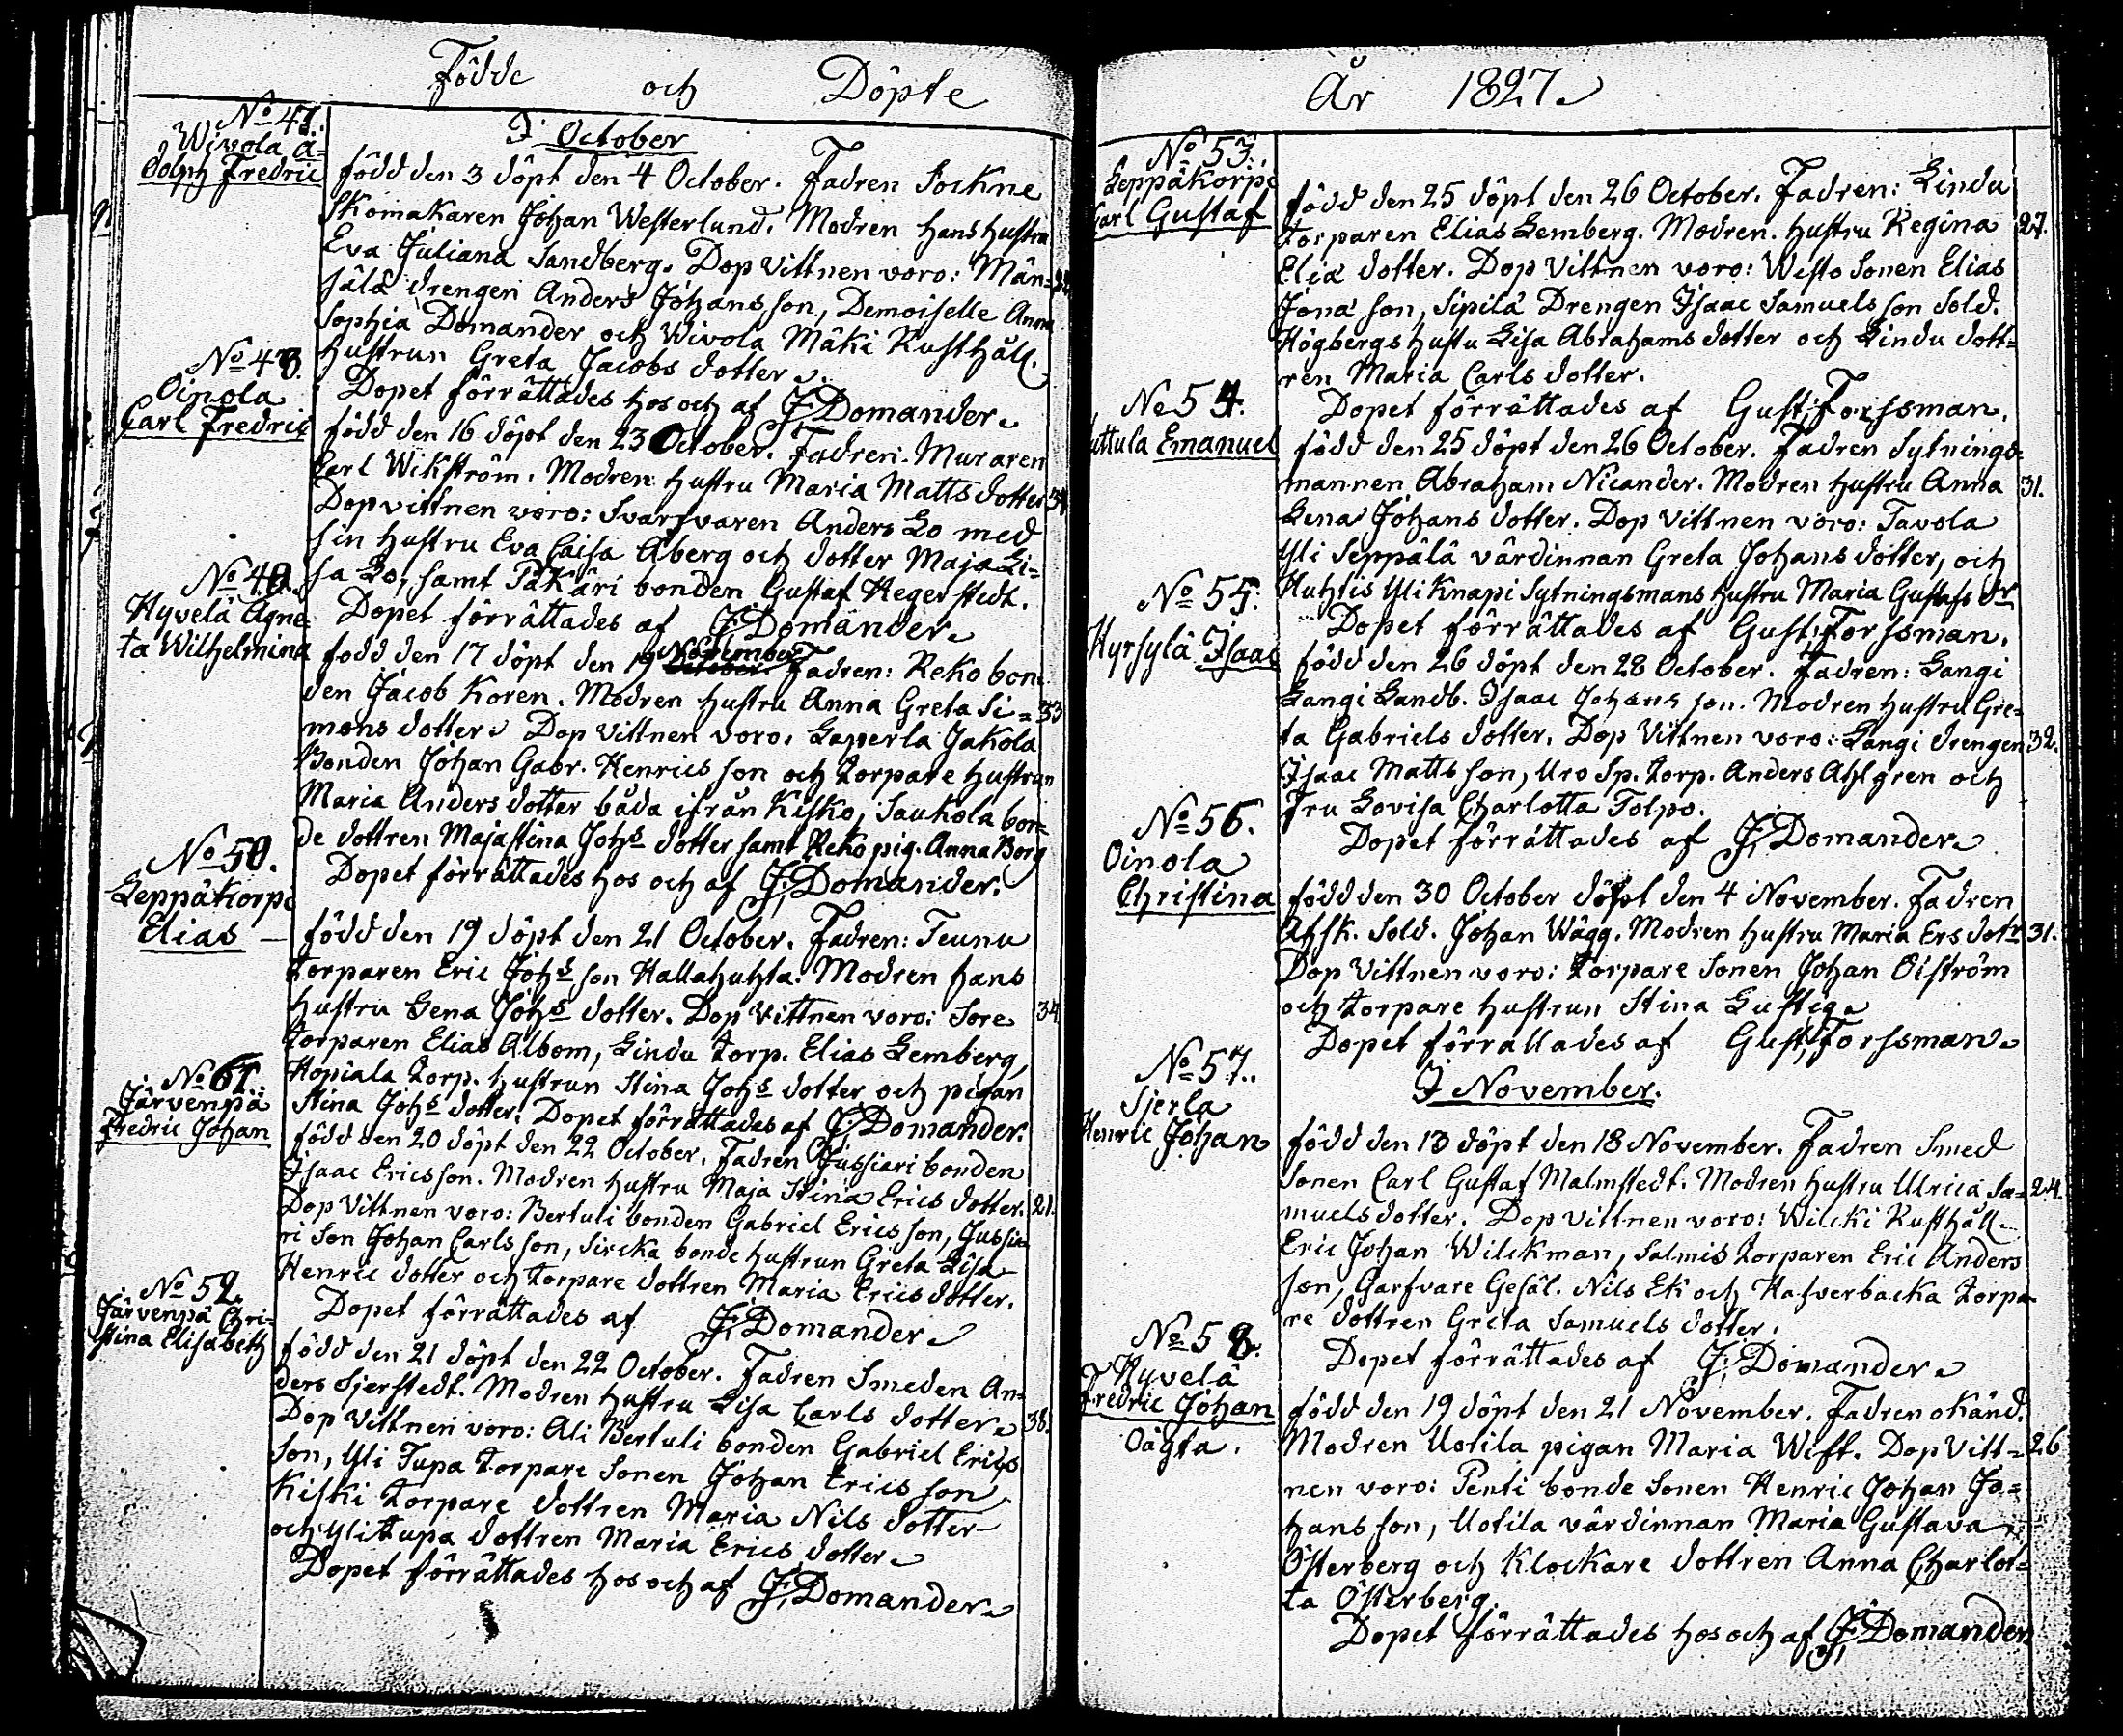 Födde och Döpte
No 47.
Wivola A-
dolph Fredric
I October
född den 3 döpt den 4 October. Fadren Sockne
Skomakaren Johan Westerlund. Modren hans hustru
Eva Juliana Sandberg. Dop Vittnen voro: Män-
sälä drengen Anders Johans son, Demoiselle Anna
Sophia Domander och Wivola Mäki Rusthåll.
hustrun Greta Jacobs dotter.
Dopet förrättades hos och af J: Domander.
No 48.
Oinola
Carl Fredric
född den 16 döpt den 23 October. Fadren. Muraren
Carl Wikström. Modren hustru Maria Matts dotter
Dopvittnen voro: Svarfvaren Anders Lo med
sin hustru Eva Caisa Åberg och dotter Maja Li-
sa Lo, samt Päkäri bonden Gustaf Hegerstedt.
Dopet förrättades af J: Domander.
No 49.
Hyvelä Agne-
ta Wilhelmina
född den 17 döpt den 19 October November Fadren: Reko bon-
den Jacob Koren. Modren hustru Anna Greta Si- 33
mons dotter. Dop Vittnen voro: Laperla Jakola
Bonden Johan Gabr. Henrics son och torpare hustrun
Maria Anders dotter båda ifrån Kisko, Saukola bon-
de dottren Majastina Johs dotter samt Reko pig. Anna Borg
Dopet förrättades hos och af J: Domander.
No 50.
Leppäkorpi
Elias
född den 19 döpt den 21 October. Fadren: Teunu
torparen Eric Johs son Hallahuhta. Modren hans
hustru Lena Johs dotter. Dop Vittnen voro: Sore 34
torparen Elias Albom, Lindu torp. Elias Lemberg,
Hopiala torp. hustrun Stina Johs dotter och pigan
Stina Johs dotter. Dopet förrättades af J: Domander.
No 51.
Järvenpä
Fredric Johan
född den 20 döpt den 22 October. Fadren Jussiari bonden
Isaac Ericsson. Modren hustru Maja Stina Erics dotter. 21.
Dop Vittnen voro: Bertuli bonden Gabriel Erics son, Jussia
ri Son Johan Carls son, Sircka bonde hustrun Greta Lisa
Henric dotter och torpare dottren Maria Erics dotter.
Dopet förrättades af J: Domander.
No 52.
Järvenpä Chri-
stina Elisabeth
född den 21 döpt den 22 October. Fadren Smeden An-
ders Sjerstedt. Modren hustru Lisa Carls dotter. 38.
Dop Vittnen voro: Ali Bertuli bonden Gabriel Erics
son, Yli Tupa torpare Sonen Johan Erics son,
Kiski torpare dottren Maria Nils dotter
och Ylitupa dottren Maria Erics dotter.
Dopet förrättades hos och af J: Domander.
År 1827.
No 53.
Leppäkorpi
Carl Gustaf
född den 25 döpt den 26 October. Fadren: Lindu
torparen Elias Lemberg. Modren. hustru Regina 27.
Elia dotter. Dop Vittnen voro: Westo Sonen Elias
Jona son, Sipilä Drengen Isaac Samuels son Sold.
Högbergs hustu Lisa Abrahams dotter och Lindu dott-
ren Maria Carls dotter.
Dopet förrättades af Gust: Forssman.
No 54.
uttula Emanuel
född den 25 döpt den 26 October. Fadren Sytnings-
mannen Abraham Nicander. Modren hustru Anna 31.
Lena Johans dotter. Dop Vittnen voro: Tavola
Yli Seppälä värdinnan Greta Johans dotter, och
Huhtis Yli Knapi Sytningsmans hustru Maria Gustafs dr
Dopet förrättades af Gust: Forssman.
No 55.
Hyrsylä Isaac
född den 26 döpt den 28 October. Fadren: Langi
Langi Landb. Isaac Johans son. Modren hustru Gre-
ta Gabriels dotter. Dop Vittnen voro: Langi drengen 32.
Isaac Matts son, Uro Sp. torp. Anders Ahlgren och
Fru Lovisa Charlotta Tolpo.
Dopet förrättades af J: Domander.
No 56.
Oinola
Christina
född den 30 October döpt den 4 November. Fadren
Afsk. Sold. Johan Wägg. Modren hustru Maria Ers dotr 31.
Dop Vittnen voro: torpare Sonen Johan Öiström
och torpare hustrun Stina Lustig.
Dopet förrattades af Gust: Forssman.
I November.
No 57.
Sjerla
Henric Johan
född den 13 döpt den 18 November. Fadren Smed
Sonen Carl Gustaf Malmstedt. Modren hustru Ulrica Sa- 24.
muels dotter. Dop vittnen voro: Wilcki Rusthåll.
Eric Johan Wilckman, Salmis torparen Eric Anders
son, Garfvare Gesäl. Nils Ek och Hafverbacka torpa-
re dottren Greta Samuels dotter.
Dopet förrättades af J: Domander.
No 58.
Hyvelä
Fredric Johan
Oägta.
född den 19 döpt den 21 November. Fadren okänd.
Modren Uotila pigan Maria West. Dop Vitt- 26
nen voro: Penti bonde Sonen Henric Johan Jo-
hans son, Uotila värdinnan Maria Gustava
Österberg och Klockare dottren Anna Charlot-
ta Österberg.
Dopet förrättades hos och af J: Domander